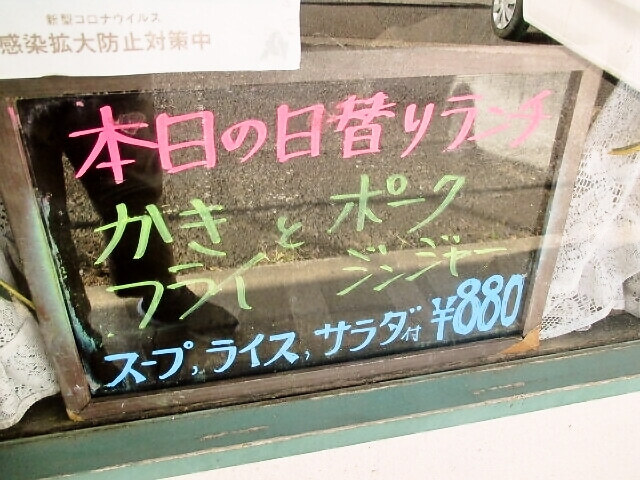 新型コロナウイルス
感染拡大防止対策中
本日の日替りランチ
かき と ポーク
フライ ジンジャー
スープ,ライス,サラダ付 ¥880